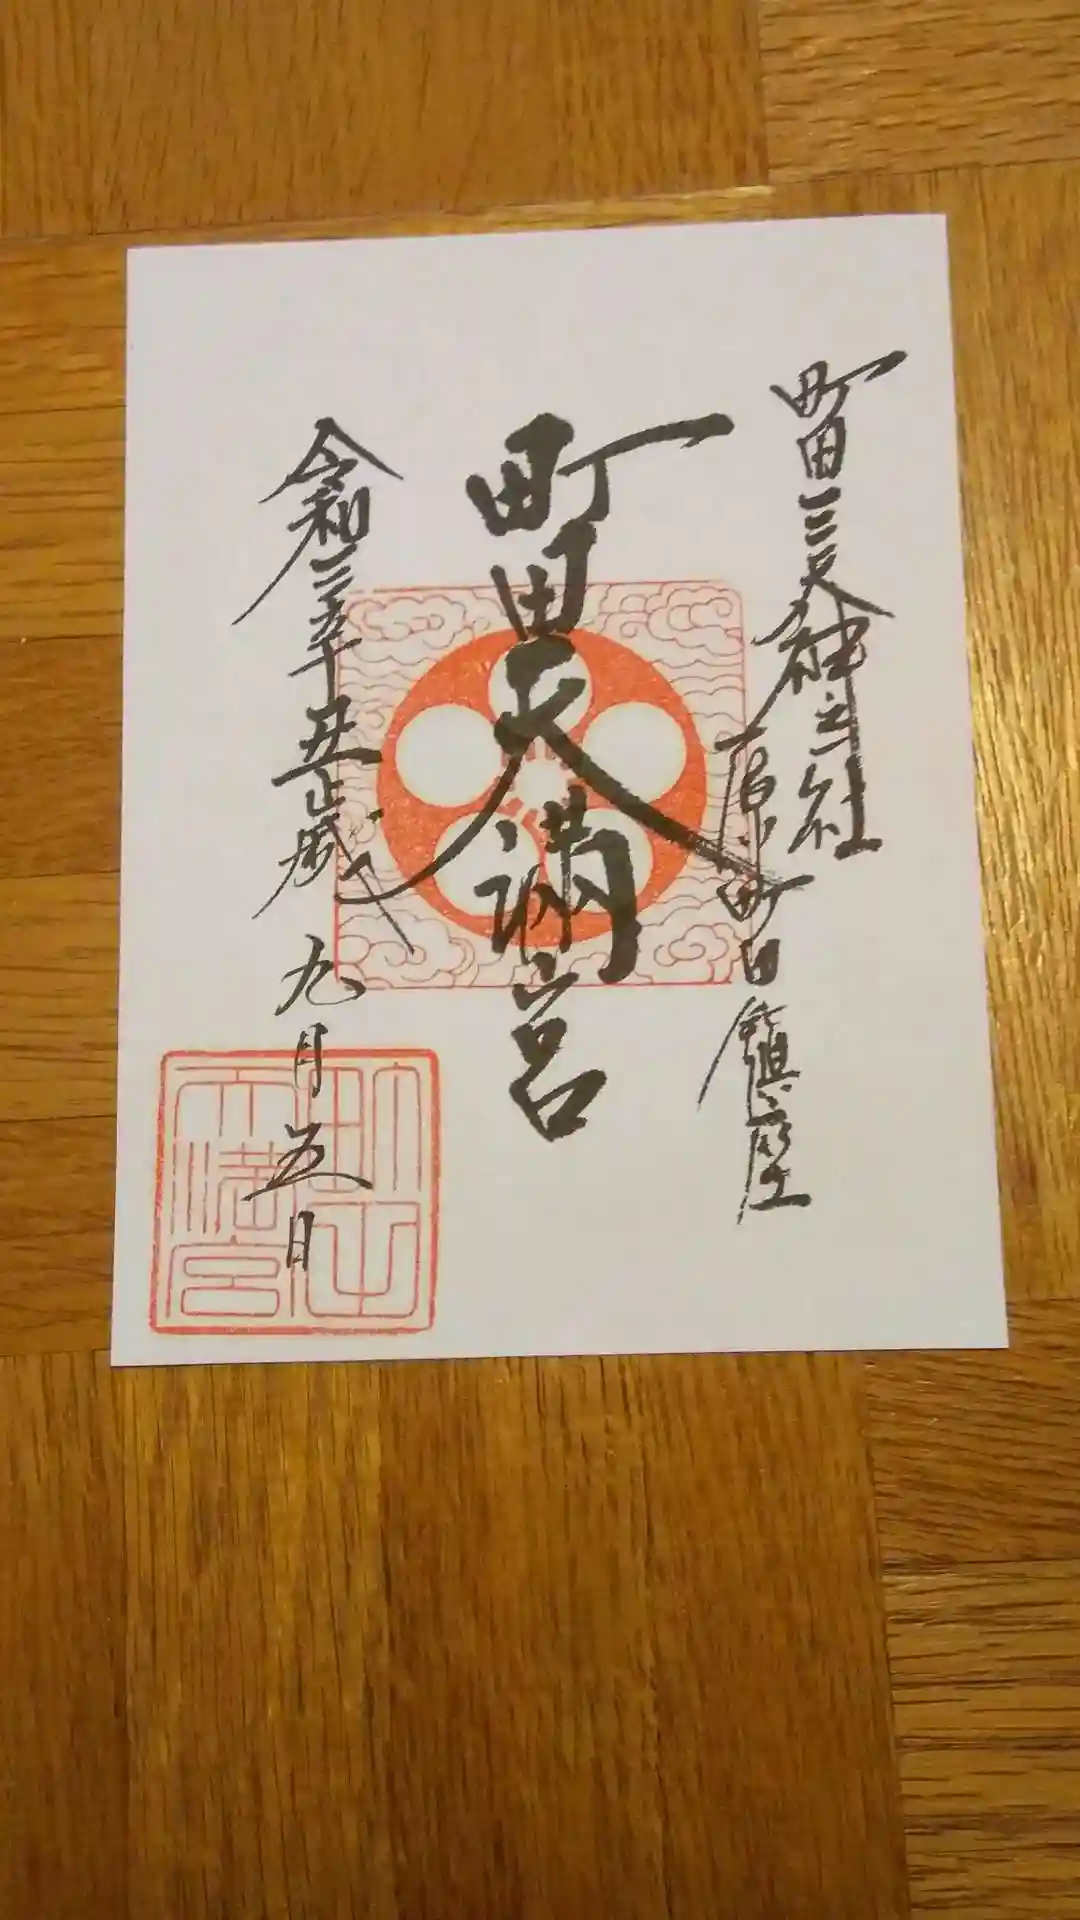 町田三天神之社
原町田鎮座
町田天満宮
令和三年辛丑歳九月五日
町田天満宮